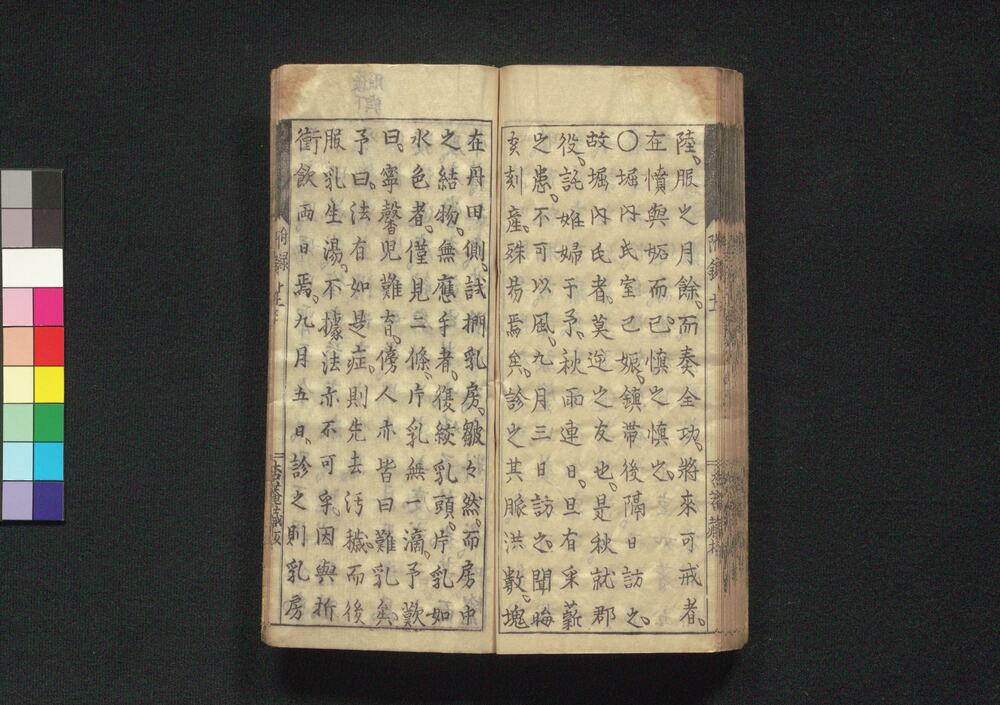 陸。服之月餘。而奏全功。將來可戒者。
在憤與妬而已。慎之慎之。
〇堀内氏室已娠。鎮帶後隔日訪之。
故堀内氏者。莫逆之友也。是秋就郡
役。託姙婦于予。秋雨連日。且有采薪
之患。不可以風。九月三日訪之。聞晦
亥刻產。殊易焉矣。診之其脈洪數。塊
在丹田側。試捫乳房。皺々然。而房中
之結物。無應手者。復絞乳頭。片乳如
水色者。僅見二條。片乳無一滴。予歎
曰。寧馨兒難育。傍人亦皆曰難乳矣。
予曰。法有如是症。則先去污穢。而後
服乳生湯。不據法亦不可乎。因與折
衝飲両日焉。九月五日。診之則乳房
附録